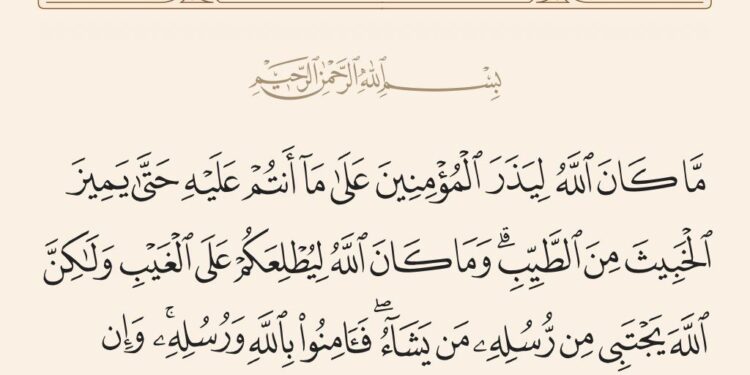 بِسْمِ ٱللَّهِ ٱلرَّحْمَٰنِ ٱلرَّحِيمِ
مَّا كَانَ ٱللَّهُ لِيَذَرَ ٱلْمُؤْمِنِينَ عَلَىٰ مَآ أَنتُمْ عَلَيْهِ حَتَّىٰ يَمِيزَ
ٱلْخَبِيثَ مِنَ ٱلطَّيِّبِ ۗ وَمَا كَانَ ٱللَّهُ لِيُطْلِعَكُمْ عَلَى ٱلْغَيْبِ وَلَٰكِنَّ
ٱللَّهَ يَجْتَبِى مِن رُّسُلِهِۦ مَن يَشَآءُ ۖ فَـَٔامِنُوا۟ بِٱللَّهِ وَرُسُلِهِۦ ۚ وَإِن